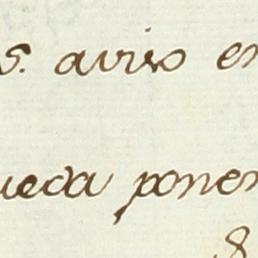 s. aviso en
ueda poner
8